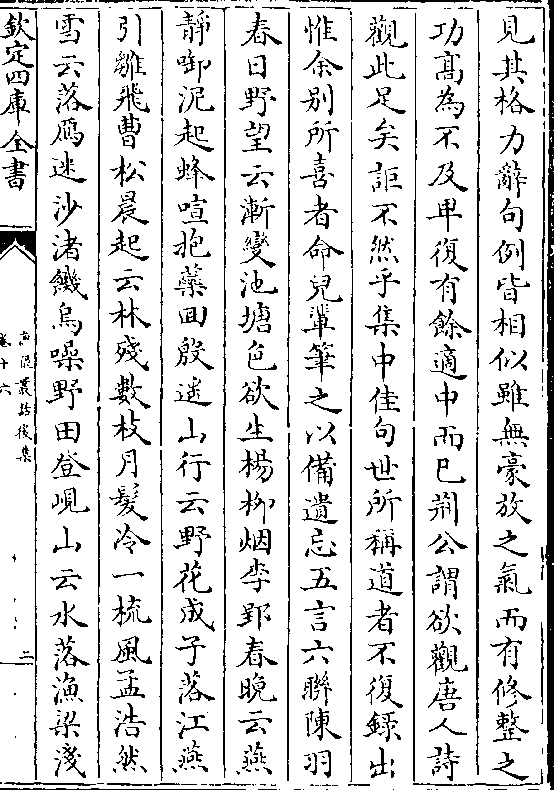 見其格力辭句例皆相似雖無豪放之氣而有修整之
功髙為不及卑復有餘適中而已荆公謂欲觀唐人詩
觀此足矣詎不然乎集中佳句世所稱道者不復録出
惟余别所喜者命兒輩筆之以備遺忘五言六聯陳羽
春日野望云漸變池塘色欲生楊柳烟李郢春晚云燕
静啣泥起蜂喧抱蘂回殷遥山行云野花成子落江燕
引雛飛曹松晨起云林殘數枝月髮冷一梳風孟浩然
雪云落鴈迷沙渚饑烏噪野田登峴山云水落漁梁淺
欽定四庫全書
漁隱叢話後集
卷十六
二